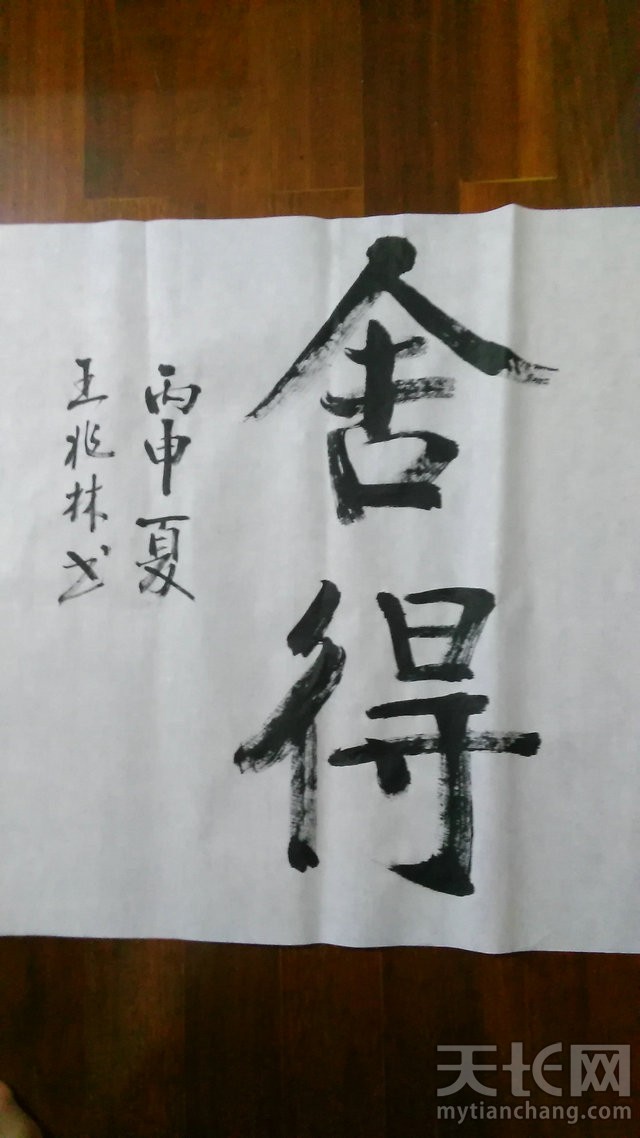 舍得
丙申夏
王兆林书
天长网
mytianchang.com